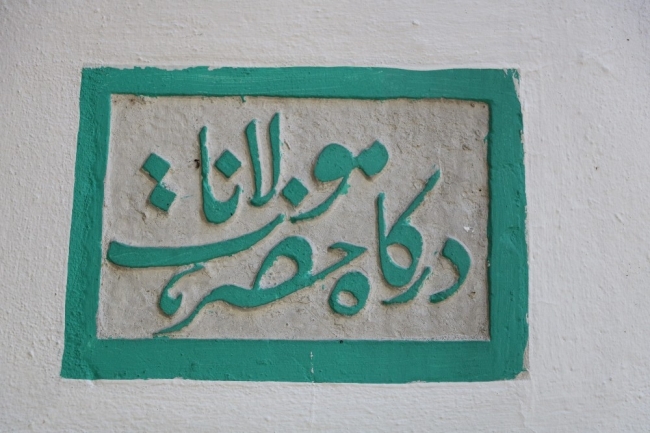 درکاه حضرت
مولانا